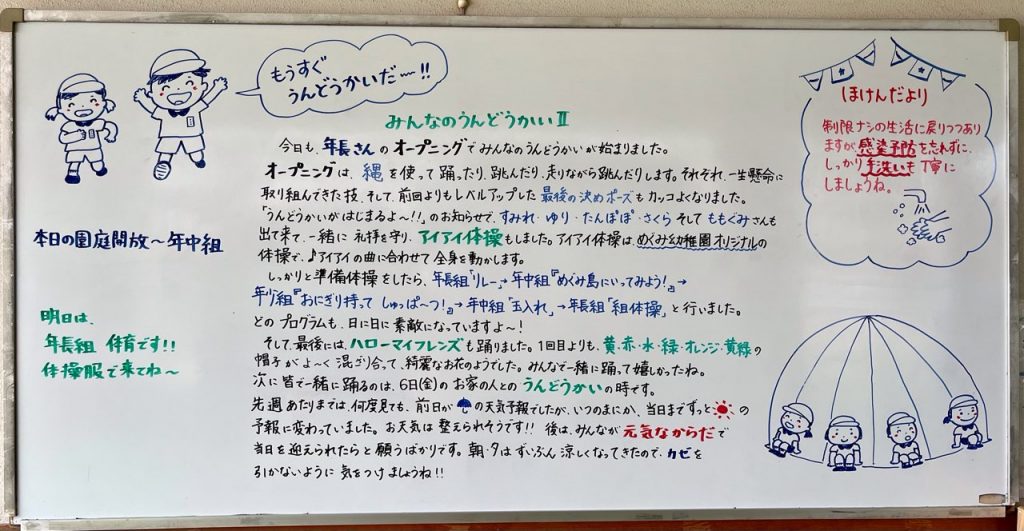 もうすぐ
うんどうかいだ〜!!
みんなのうんどうかいⅡ
今日も、年長さんのオープニングでみんなのうんどうかいが始まりました。
オープニングは、縄を使って踊ったり、跳んだり、走りながら跳んだりします。それぞれ、一生懸命に
取り組んできた技、そして、前回よりもレベルアップした最後の決めポーズもカッコよくなりました。
「うんどうかいがはじまるよ〜!!」のお知らせで、すみれ・ゆり・たんぽぽ・さくらそしてももぐみさんも
出て来て、一緒に礼拝を守り、アイアイ体操もしました。アイアイ体操は、めぐみ幼稚園オリジナルの
体操で、♪アイアイの曲に合わせて全身を動かします。
しっかりと準備体操をしたら、年長組「リレー」→年中組『めぐみ島にいってみよう!』→
年少組『おにぎり持ってしゅっぱ〜つ!』→年中組「玉入れ」→年長組「組体操」と行いました。
どのプログラムも、日に日に素敵になっていますよ〜!
そして、最後には、ハローマイフレンズも踊りました。1回目よりも、黄・赤・水・緑・オレンジ・黄緑の
帽子がよ〜く混ざり合って、綺麗なお花のようでした。みんなで一緒に踊って嬉しかったね。
次に皆で一緒に踊るのは、6日(金)のお家の人とのうんどうかいの時です。
先週あたりまでは、何度見ても、前日が☂の天気予報でしたが、いつのまにか、当日までずっと☀の
予報に変わっていました。お天気は整えられそうです!!後は、みんなが元気なからだで
当日を迎えられたらと願うばかりです。朝・夕はずいぶん涼しくなってきたので、カゼを
引かないように気をつけましょうね!!
本日の園庭開放〜年中組
明日は、
年長組体育です!!
体操服で来てね〜
ほけんだより
制限ナシの生活に戻りつつあり
ますが感染予防を忘れずに、
しっかり手洗いを丁寧に
しましょうね。